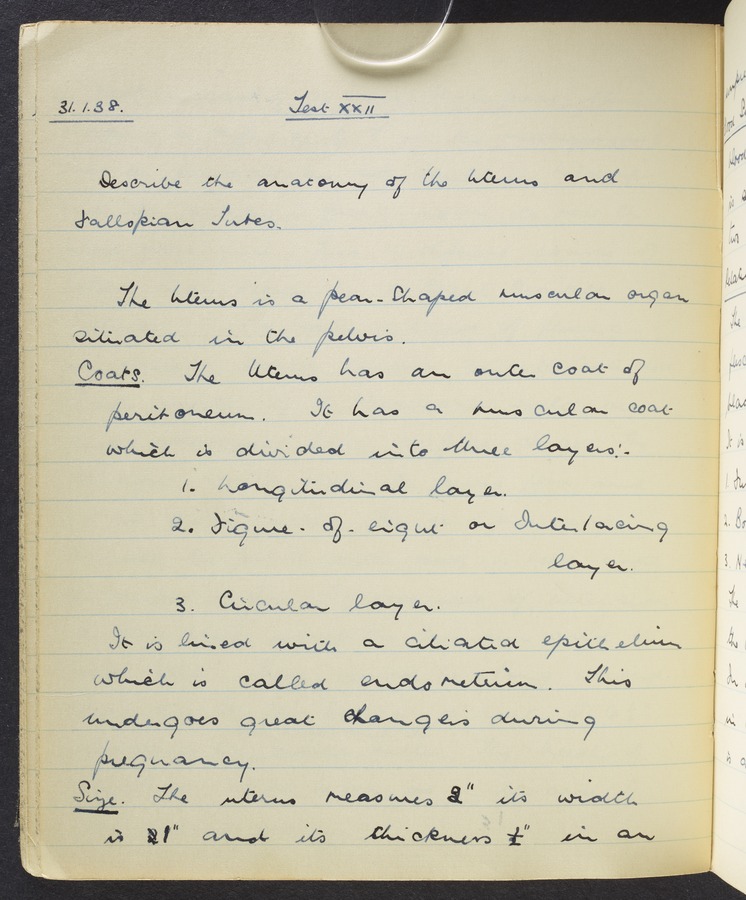 31.1.38. Test XXII
Describe the anatomy of the Uterus and
Fallopian Tubes.
The Uterus is a pear-Shaped muscular organ
situated in the pelvis.
Coats. The Uterus has an outer coat of
peritoneum. It has a muscular coat
which is divided into three layers:-
1. Longitudinal layer.
2. Figure-of-eight or Interlacing
layer.
3. Circular layer.
It is lined with a ciliated epithelium
which is called endometrium. This
undergoes great changes during
pregnancy.
Size. The uterus measures 3" its width
is 21" and its thickness 1" in an